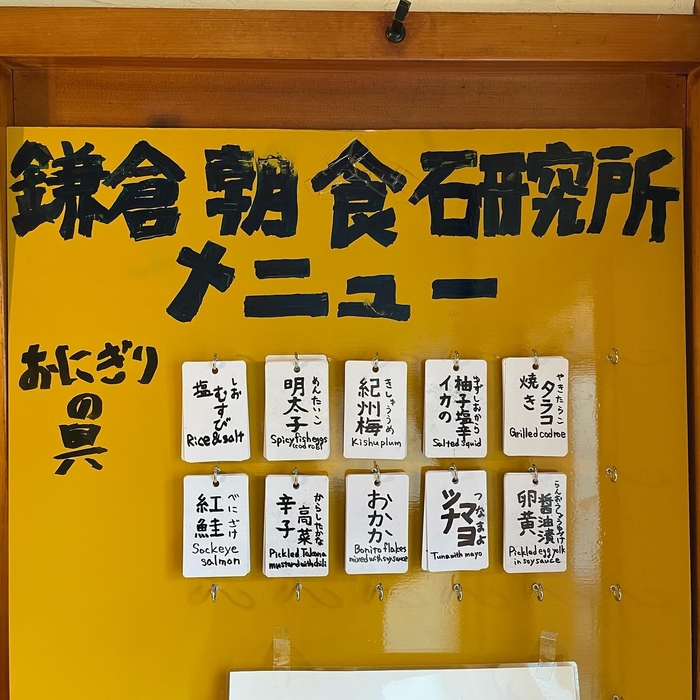 鎌倉朝食研究所
メニュー
おにぎり
の具
しお
塩むすび
Rice & salt
めんたいこ
明太子
Spicy fish eggs
(cod roe)
きしゅううめ
紀州梅
Kishu plum
ゆずしおから
イカの
柚子塩辛
Salted squid
やきたらこ
焼き
タラコ
Grilled cod roe
べにざけ
紅鮭
Sockeye
salmon
からしたかな
辛子
高菜
Pickled Takana
mustard with chili
おかか
Bonito flakes
mixed with soy sauce
つなまよ
ツナ
マヨ
Tuna with mayo
卵黄
醤油漬
Pickled egg yolk
in soy sauce